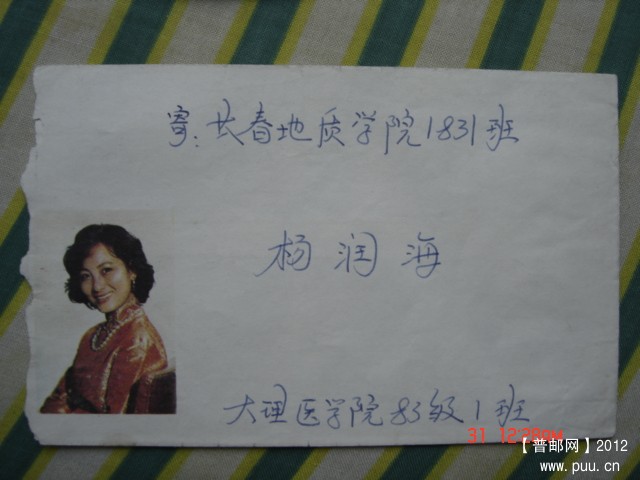 寄:长春地质学院1831班
杨润海
大理医学院83级1班
31 12:29PM
【普邮网】2012
www.puu.cn